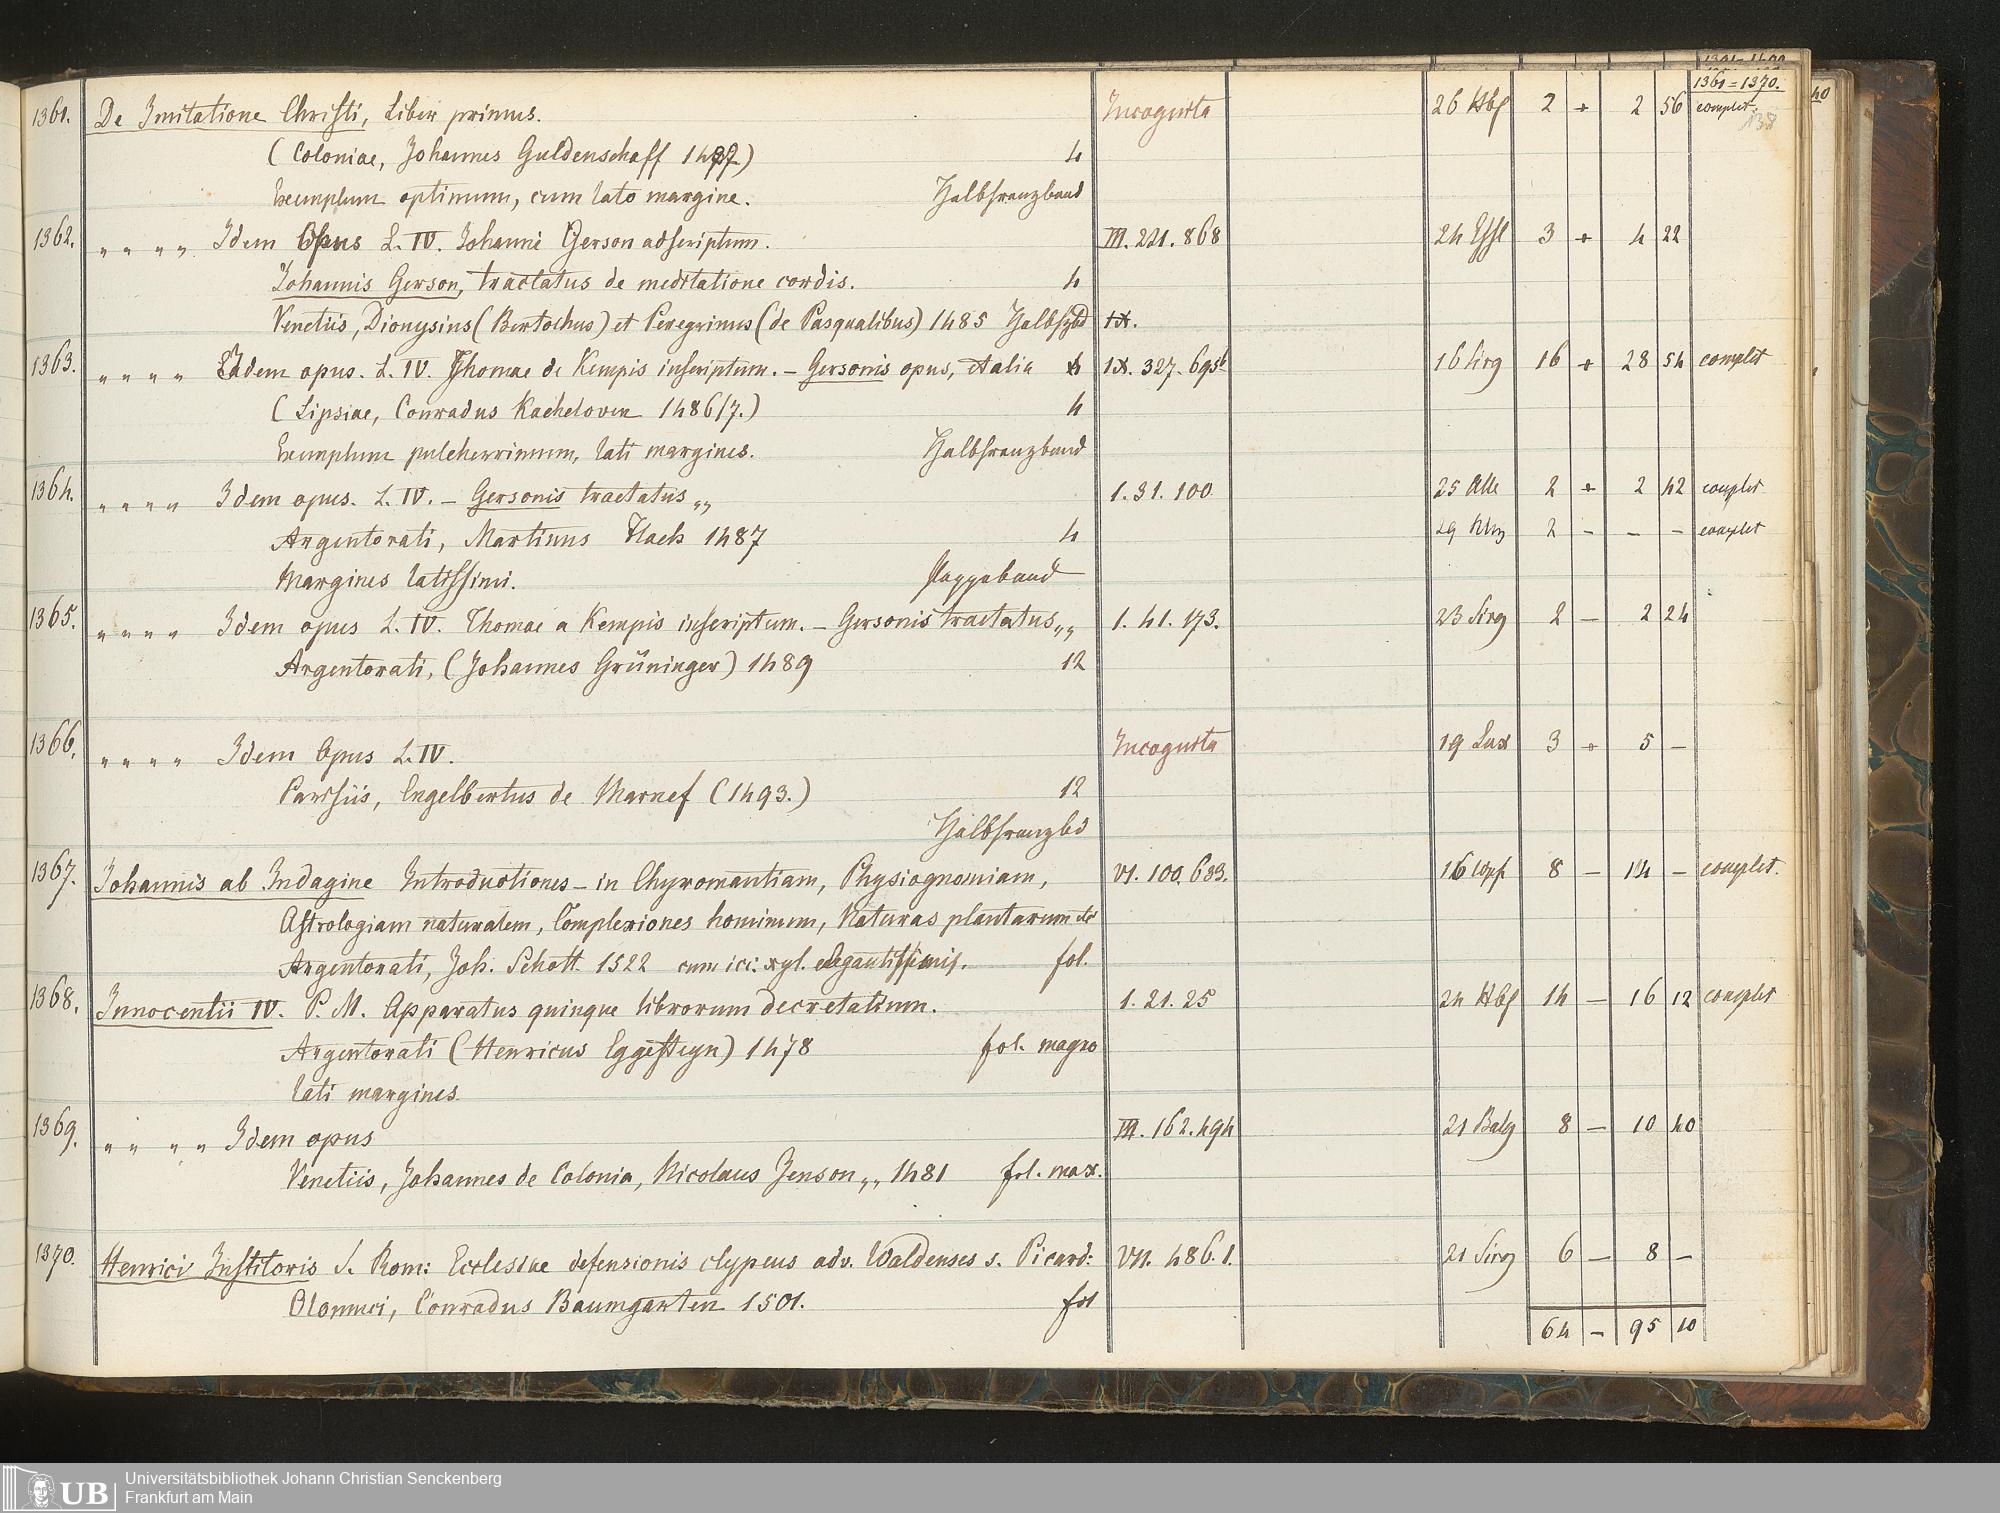 1361 = 1370.
1361. De Imitatione Christi, Liber primus. Incognita 26 Hbg 2 + 2 56 complet.
(Coloniae, Johannes Guldenschaff 1487) 4
Exemplum optimum, cum lato margine. Halbfranzband
1362. " " " " Idem Opus L. IV. Johanni Gerson adscriptum. III. 221. 868 24 Essl 3 + 4 22
Johannis Gerson, tractatus de meditatione cordis. 4
Venetiis, Dionysius (Bertochus) et Peregrinus (de Pasqualibus) 1485 Halbfzbd IX.
1363. " " " " Idem opus. L. IV. Thomae de Kempis inscriptum. – Gersonis opus, et alia IX. 327. 695b 16 Sirg 16 + 28 54 complet
(Lipsiae, Conradus Kacheloven 1486/7.) 4
Exemplum pulcherrimum, lati margines. Halbfranzband
1364. " " " " Idem opus. L. IV. – Gersonis tractatus „ 1. 31. 100 25 Alle 2 + 2 42 complet
Argentorati, Martinus Flach 1487 4 29 2 – – – complet
Margines latissimi. Pappeband
1365. " " " " Idem opus L. IV. Thomae a Kempis inscriptum. – Gersonis tractatus „ 1. 41. 173. 23 Sirg 2 – 2 24
Argentorati, (Johannes Grüninger) 1489 12
1366. " " " " Idem Opus L. IV. Incognita 19 Lux 3 + 5 –
Parisiis, Engelbertus de Marnef (1493.) 12
Halbfranzbd
1367. Johannis ab Indagine Introductiones – in Chyromantiam, Physiognomiam, VI. 100. 633. 16 8 – 14 – complet.
Astrologiam naturalem, Complexiones hominum, Naturas plantarum etc
Argentorati, Joh. Schott. 1522 cum ici: xyl. elegantissimis. fol.
1368. Innocentii IV. P. M. Apparatus quinque librorum decretalium. 1. 21. 25 24 Hbg 14 – 16 12 complet
Argentorati (Henricus Eggesteyn) 1478 fol. magno
lati margines
1369. " " " " Idem opus III. 162. 494 21 Balg 8 – 10 40
Venetiis, Johannes de Colonia, Nicolaus Jenson „ 1481 fol. max.
1370. Henrici Institoris S. Rom: Ecclesiae defensionis clypeus adv. Waldenses s. Picard: VII. 486. 1. 21 Sirg 6 – 8 –
Olomuci, Conradus Baumgarten 1501. fol
64 – 95 10
UB Universitätsbibliothek Johann Christian Senckenberg
Frankfurt am Main